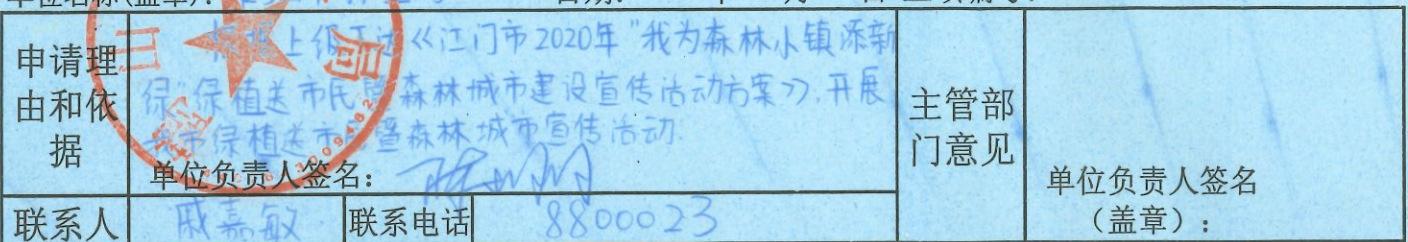 申请理由和依据
根据上级下达《江门市2020年"我为森林小镇添新
绿"绿植送市民暨森林城市建设宣传活动方案》,开展
我市绿植送市民暨森林城市宣传活动.
单位负责人签名:
主管部门意见
单位负责人签名
(盖章):
联系人 戚嘉敏 联系电话 8800023